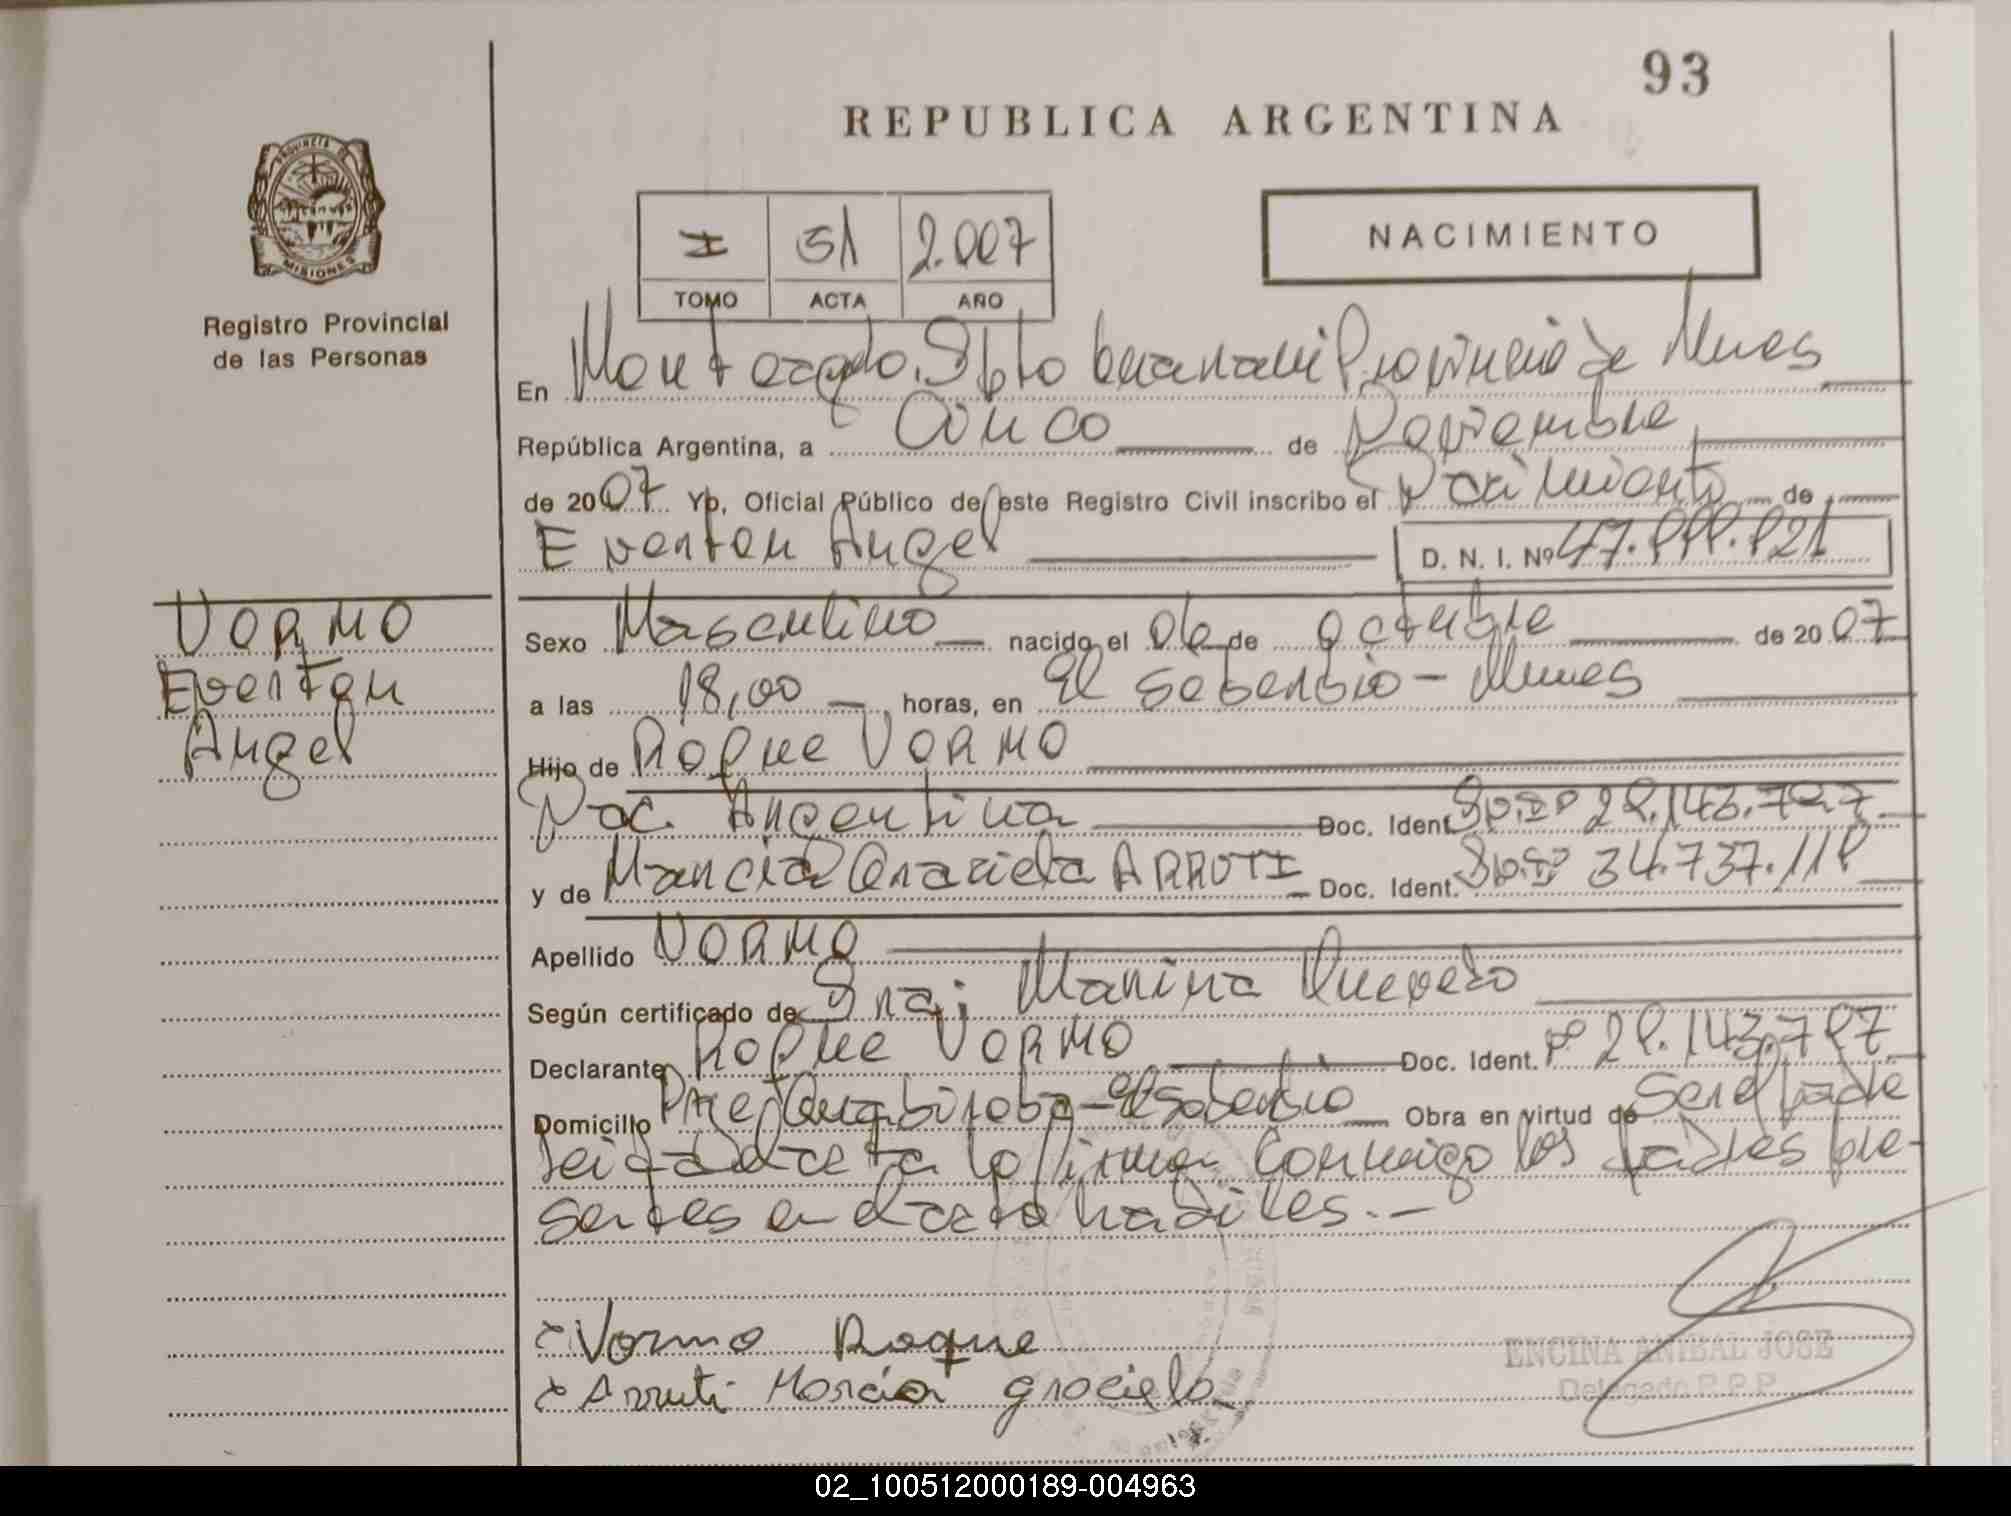 93
REPUBLICA ARGENTINA
PROVINCIA DE
MISIONES
Registro Provincial
de las Personas
I 51 2.007
TOMO ACTA AÑO
NACIMIENTO
En Monteagudo, Dpto Guarani Provincia de Mnes
República Argentina, a Cinco de Noviembre
de 2007 Yo, Oficial Público de este Registro Civil inscribo el Nacimiento de
Everton Angel D. N. I. Nº 47.888.821
VORMO
Everton
Angel
Sexo Masculino nacido el 06 de octubre de 2007
a las 18,00 horas, en El Soberbio - Mnes
Hijo de Roque VORMO
Nac. Argentina Doc. Ident. 28.143.787
y de Marcia Graciela ARRUTI Doc. Ident. 34.737.118
Apellido VORMO
Según certificado de Sra; Marina Quevedo
Declarante Roque VORMO Doc. Ident. Nº 28.143.787
Domicilio Pje - El Soberbio Obra en virtud de Ser el padre
leida el acta la firman conmigo los padres pre-
sentes en acta habiles.-
x Vormo Roque
x Arruti Marcia graciela
ENCINA ANIBAL JOSE
Delegado R.P.P.
02_100512000189-004963